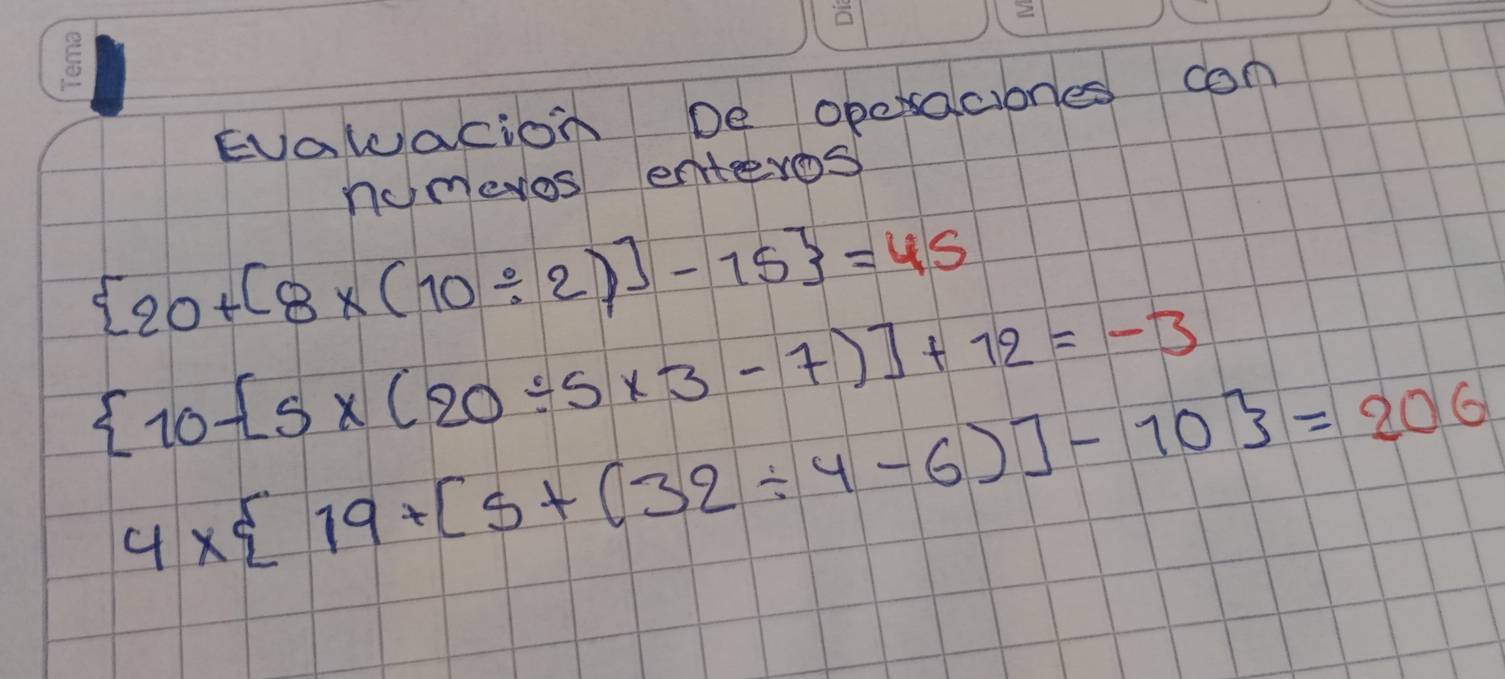 Tema
Día
M
Evaluación De operaciones con
numeros enteros
{20+[8×(10÷2)]-15}=45
{10-[5×(20÷5×3-7)]+12=-3
4×{19+[5+(32÷4-6)]-10}=206